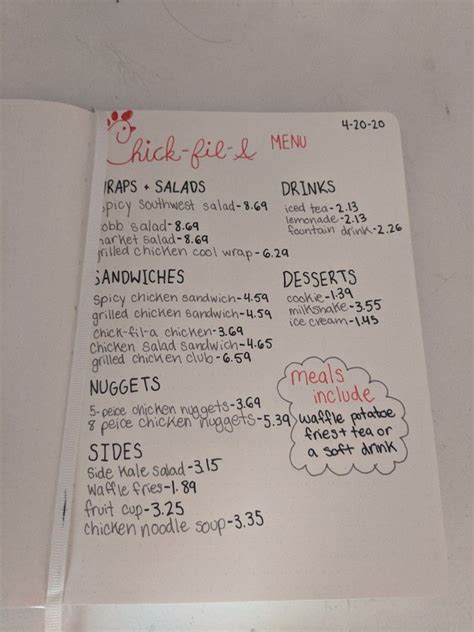 4-20-20
Chick-fil-A MENU
WRAPS + SALADS
spicy southwest salad-8.69
cobb salad-8.69
market salad-8.69
grilled chicken cool wrap-6.29
SANDWICHES
spicy chicken sandwich-4.59
grilled chicken sandwich-4.59
chick-fil-a chicken-3.69
chicken salad sandwich-4.65
grilled chicken club-6.59
NUGGETS
5-peice chicken nuggets-3.69
8 peice chicken nuggets-5.39
SIDES
Side Kale salad-3.15
waffle fries-1.89
fruit cup-3.25
chicken noodle soup-3.35
DRINKS
iced tea-2.13
lemonade-2.13
fountain drink-2.26
DESSERTS
cookie-1.39
milkshake-3.55
ice cream-1.45
meals
include
waffle potatoe
fries + tea or
a soft drink